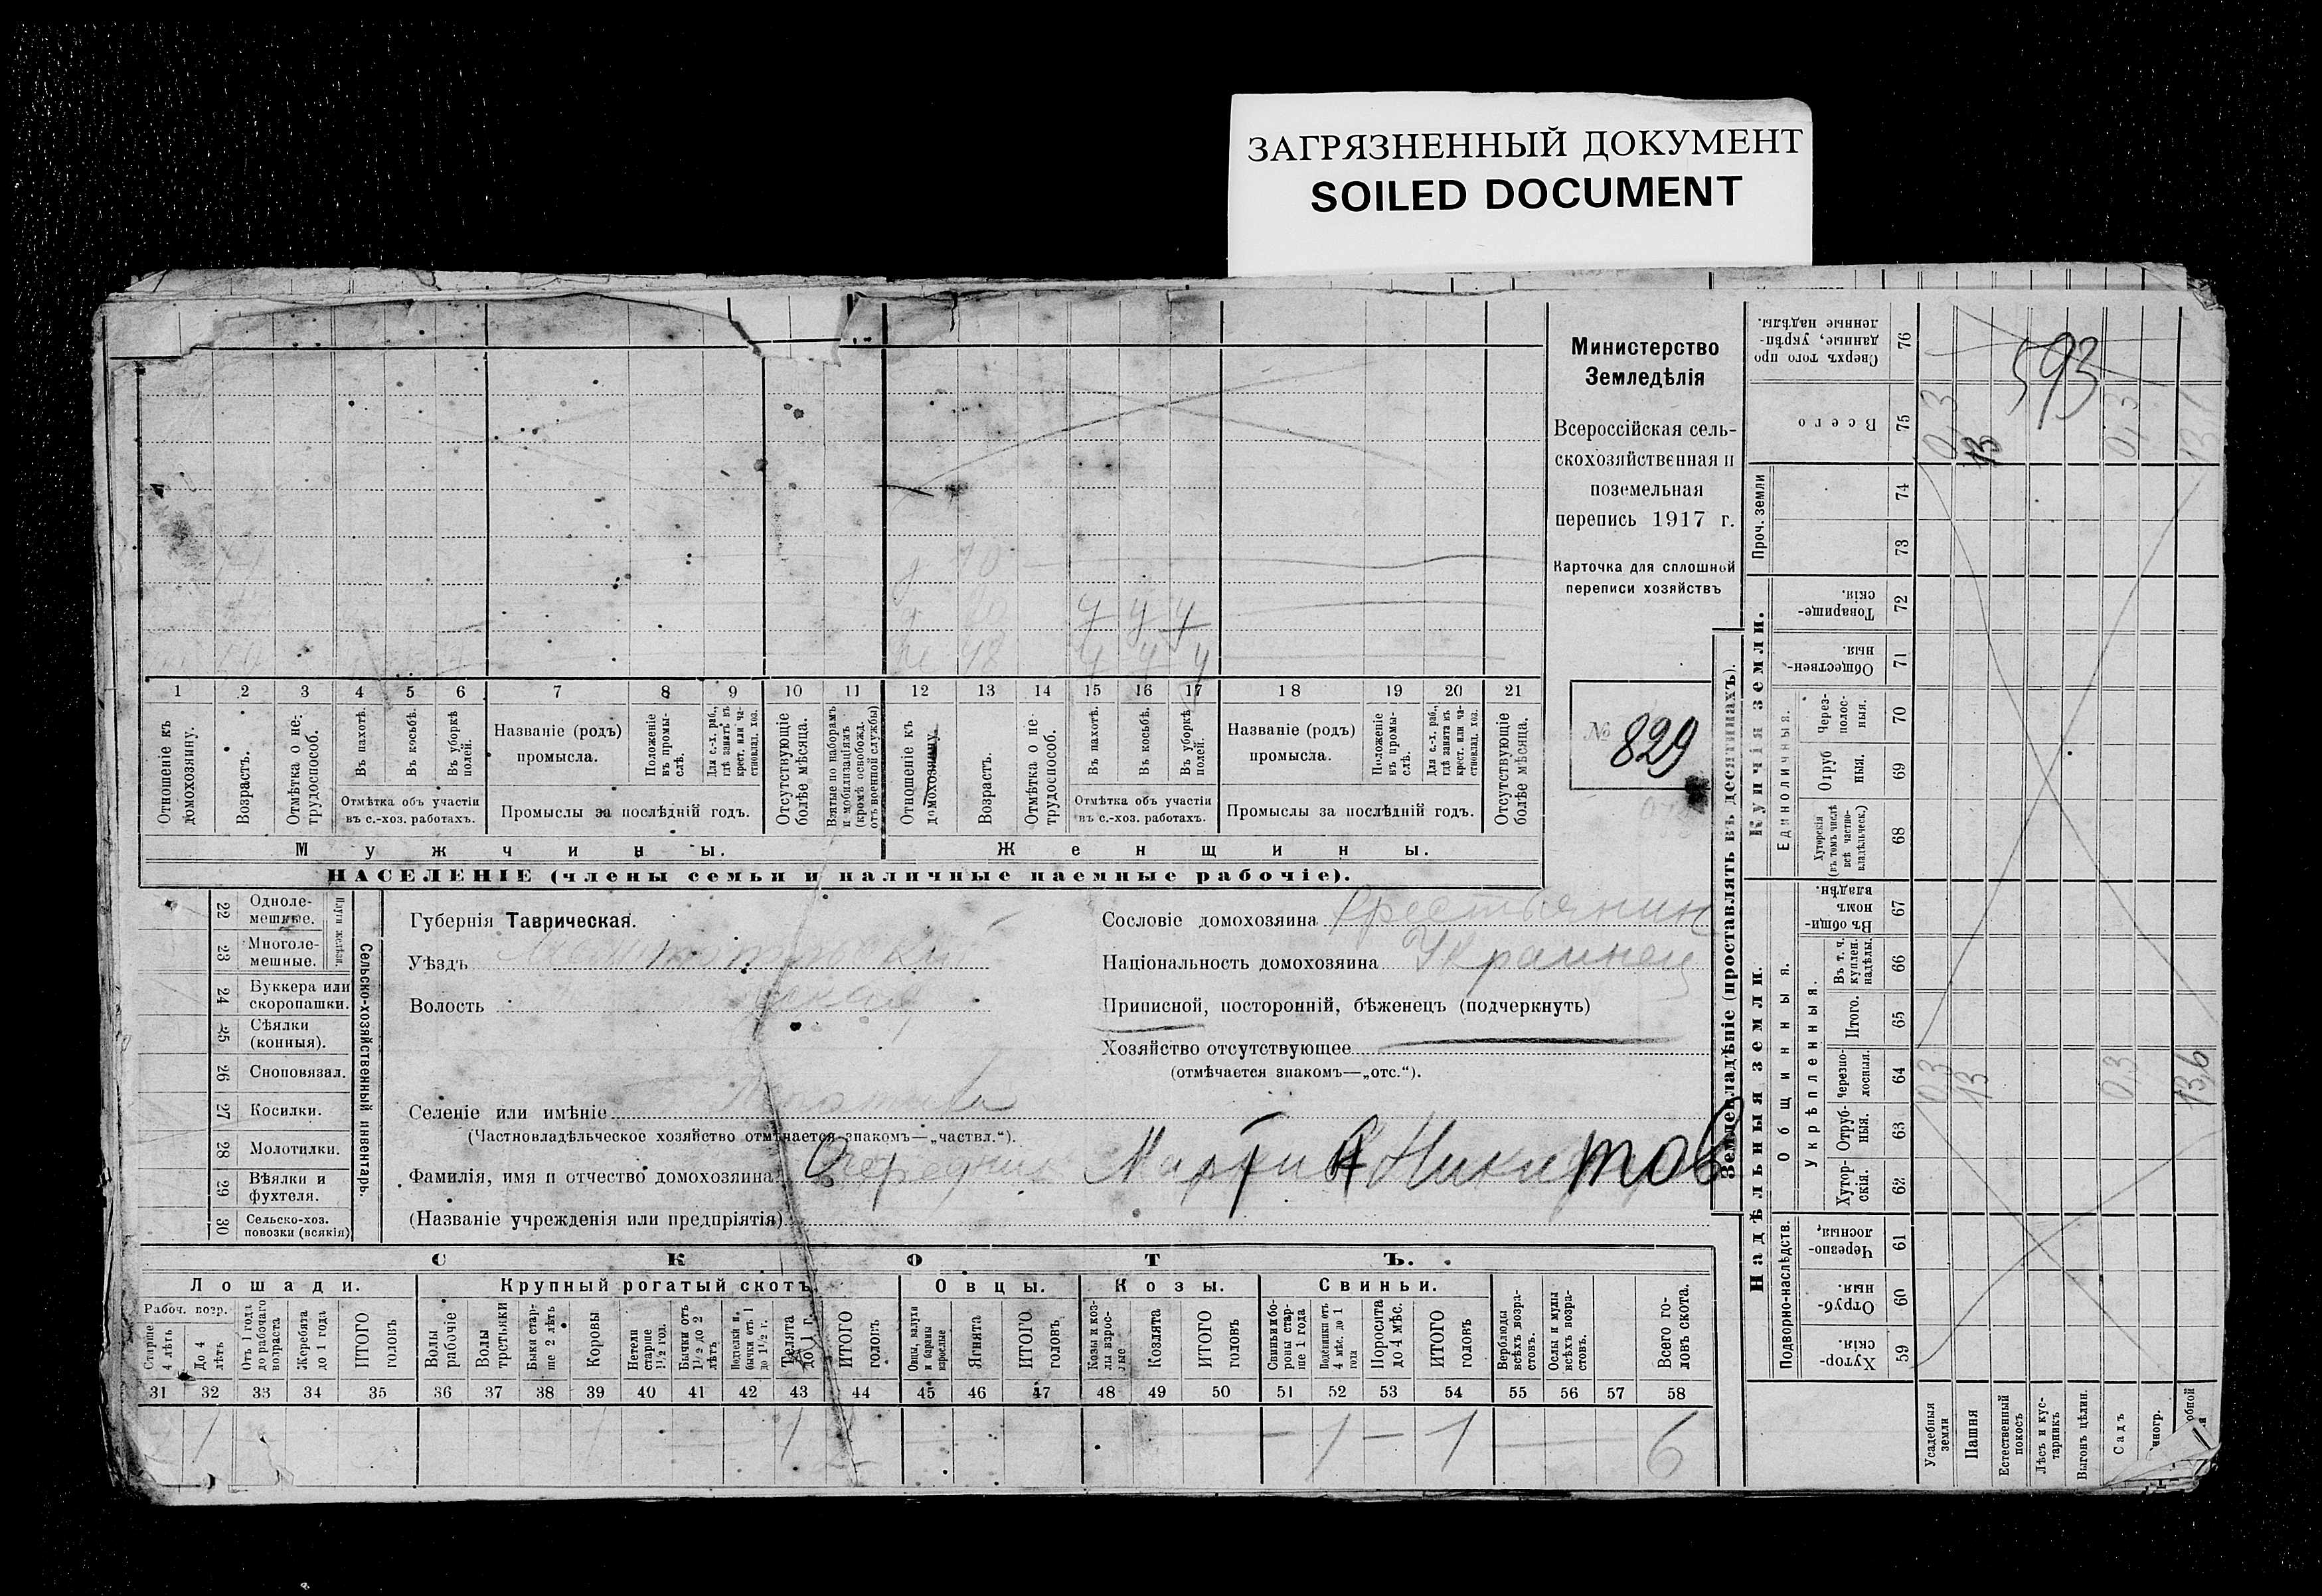 ЗАГРЯЗНЕННЫЙ ДОКУМЕНТ
SOILED DOCUMENT
Министерство
Земледѣлія
Всероссійская сель-
скохозяйственная и
поземельная
перепись 1917 г.
Карточка для сплошной
переписи хозяйствъ
№ 829
70
60 ч ч ч
48 ч ч ч
1 2 3 4 5 6 7 8 9 10 11 12 13 14 15 16 17 18 19 20 21
Отношеніе къ домохозяину.
Возрастъ.
Отмѣтка о не-трудоспособ.
Въ пахотѣ.
Въ косьбѣ.
Въ уборкѣ полей.
Отмѣтка объ участіи
въ с.-хоз. работахъ.
Названіе (родъ)
промысла.
Положеніе въ промы-слѣ.
Для с.-х. раб., гдѣ занятъ въ крест. или ча-стновлад. хоз.
Промыслы за послѣдній годъ.
Отсутствующіе болѣе мѣсяца.
Взятые по наборамъ и мобилизаціямъ (кромѣ освобожд. отъ военной службы)
Отношеніе къ домохозяину.
Возрастъ.
Отмѣтка о не-трудоспособ.
Въ пахотѣ.
Въ косьбѣ.
Въ уборкѣ полей.
Отмѣтка объ участіи
въ с.-хоз. работахъ.
Названіе (родъ)
промысла.
Положеніе въ промы-слѣ.
Для с.-х. раб., гдѣ занята въ крест. или ча-стновлад. хоз.
Промыслы за послѣдній годъ.
Отсутствующіе болѣе мѣсяца.
Мужчины. Женщины.
НАСЕЛЕНІЕ (члены семьи и наличные наемные рабочіе).
22 Одноле-мешные.
23 Многоле-мешные.
Плуги желѣзн.
24 Буккера или скоропашки.
25 Сѣялки (конныя).
26 Сноповязал.
27 Косилки.
28 Молотилки.
29 Вѣялки и фухтеля.
30 Сельско-хоз. повозки (всякія)
Сельско-хозяйственный инвентарь.
Губернія Таврическая.
Уѣздъ Мелитопольскій
Волость
Селеніе или имѣніе
(Частновладѣльческое хозяйство отмѣчается знакомъ—„частвл.“).
Фамилія, имя и отчество домохозяина Мартин Никитов
(Названіе учрежденія или предпріятія)
Сословіе домохозяина крестьянин
Національность домохозяина Украинец
Приписной, посторонній, бѣженецъ (подчеркнуть)
Хозяйство отсутствующее
(отмѣчается знакомъ—„отс.“).
СКОТЪ.
Лошади. Крупный рогатый скотъ. Овцы. Козы. Свиньи.
Рабоч. возр.
Старше 4 лѣтъ
До 4 лѣтъ
Отъ 1 года до рабочаго возраста
Жеребята до 1 года
ИТОГО головъ
Волы рабочіе
Волы третьяки
Быки стар-ше 2 лѣтъ
Коровы
Нетели старше 1½ год.
Бычки отъ 1½ до 2 лѣтъ
Подтелки и бычки отъ 1 до 1½ г.
Телята до 1 г.
ИТОГО головъ
Овцы, валухи и бараны взрослые
Ягнята
ИТОГО головъ
Козы и коз-лы взрос-лые
Козлята
ИТОГО головъ
Свиньи и бо-ровы стар-ше 1 года
Подсвинки отъ 4 мѣс. до 1 года
Поросята до 4 мѣс.
ИТОГО головъ
Верблюды всѣхъ возра-стовъ.
Ослы и мулы всѣхъ возра-стовъ.
Всего го-ловъ скота.
31 32 33 34 35 36 37 38 39 40 41 42 43 44 45 46 47 48 49 50 51 52 53 54 55 56 57 58
1 1 — 1 — 1 — 6
Землевладѣніе (проставлять въ десятинахъ).
Купчія земли.
Надѣльныя земли.
76 Сверхъ того про-данные, укрѣп-ленные надѣлы.
593
75 Всего
0,3 13 0,3
Проч. земли
74
73
72 Товарище-скія.
71 Обществен-ныя.
Единоличныя.
70 Через-полос-ныя.
69 Отруб-ныя.
68 Хуторскія (въ томъ числѣ всѣ частно-владѣльческ.)
Общинныя.
67 Въ общин-номъ владѣн.
Укрѣпленныя.
66 Въ т. ч. куплен. надѣлы.
65 Итого.
64 Черезпо-лосныя.
0,3 13 0,3 13,6
63 Отруб-ныя.
62 Хутор-скія.
Подворно-наслѣдств.
61 Черезпо-лосныя.
60 Отруб-ныя.
59 Хутор-скія.
Усадебныя земли
Пашня
Естественный покосъ
Лѣсъ и кус-тарникъ
Выгонъ цѣлин.
Садъ